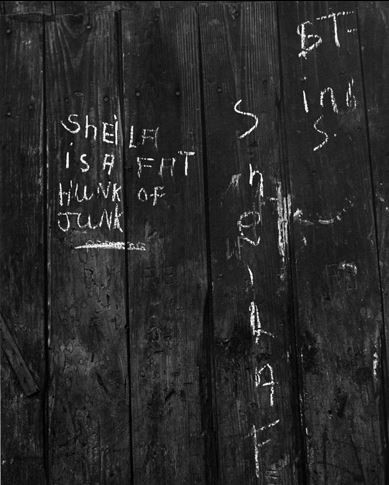 SheiLA
iS A FAT
HUNK OF
JUNK
SheilAF
ST-
ink
S.